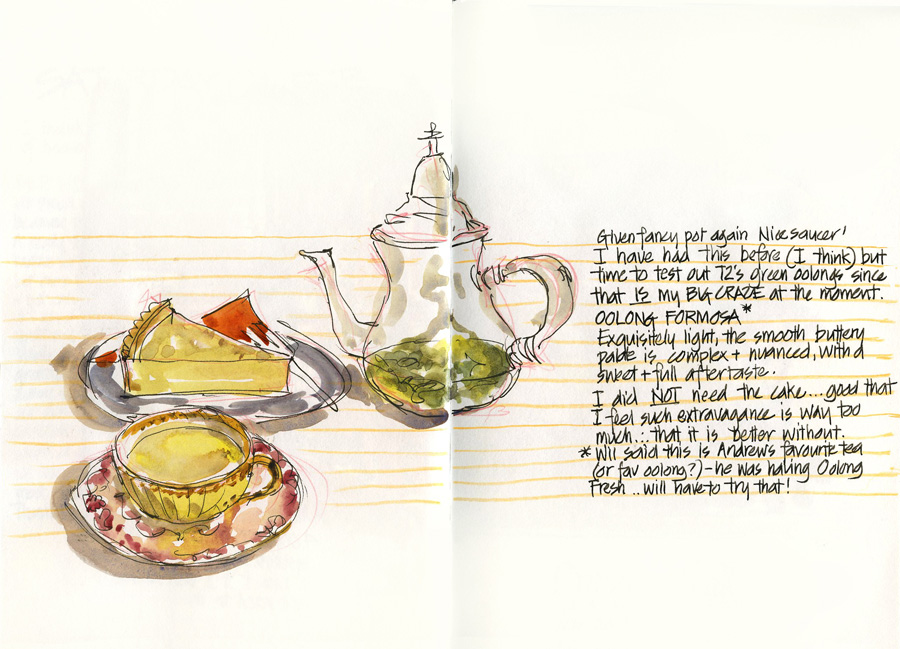 Given fancy pot again Nice saucer!
I have had this before (I think) but
time to test out T2's green oolongs since
that IS my BIG CRAZE at the moment.
OOLONG FORMOSA*
Exquisitely light, the smooth buttery
palate is complex + nuanced, with a
sweet + full aftertaste.
I did NOT need the cake... good that
I feel such extravagance is way too
much... that it is better without.
* Wil said this is Andrews favourite tea
(or fav oolong?) - he was having Oolong
Fresh.. will have to try that!